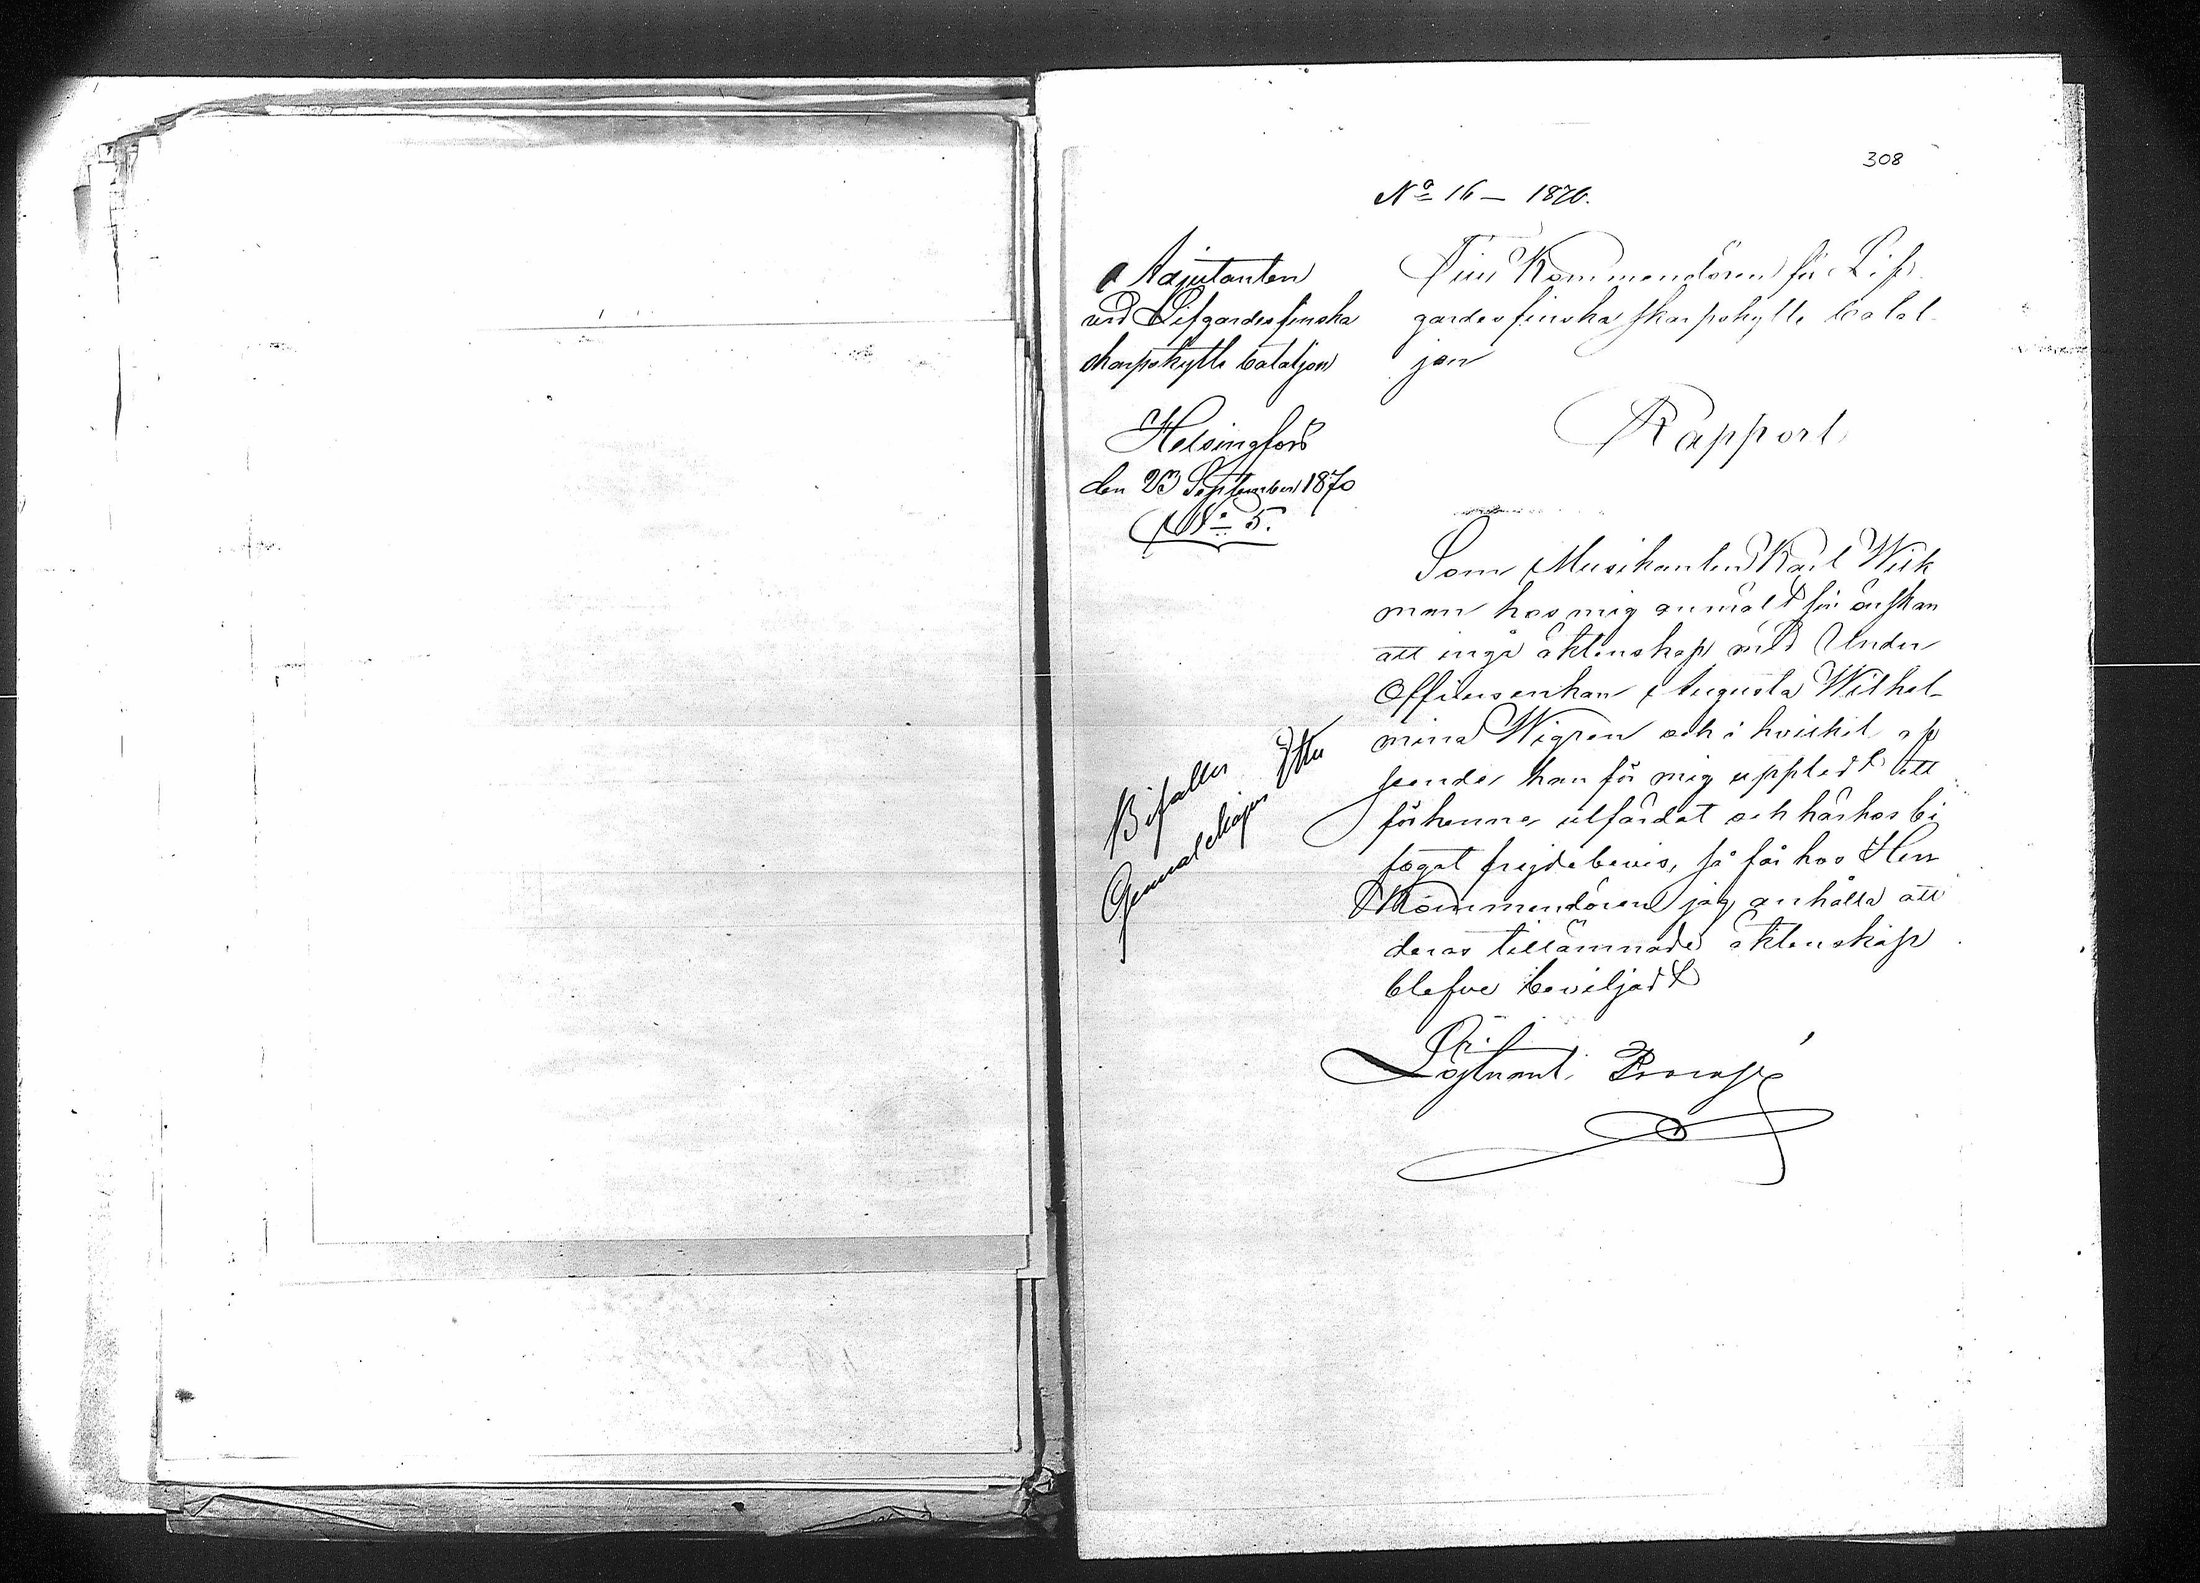 308
No 16 – 1870.
Adjutanten
vid Lifgardes finska
skarpskytte bataljon
Helsingfors
den 23 September 1870
No 5.
Till Kommendören för Lif
gardes finska skarpskytte batal
jon
Rapport
Som Musikanten Karl Wik
man hos mig anmält sin önskan
att ingå äktenskap med Under
Officersenkan Augusta Wilhel-
mina Wigren och i hvilket af
seende han för mig uppledt ett
för henne utfärdat och härhos bi
fogat frejdebevis, så får hos Herr
Kommendören jag anhålla att
deras tillämnade äktenskap
blefve beviljadt
Löjtnant
Bifalles
General Major